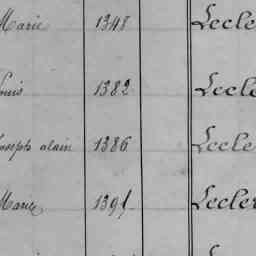 Marie 1348 Lecle
Louis 1382 Lecle
Joseph alain 1386 Lecle
Marie 1391. Lecler